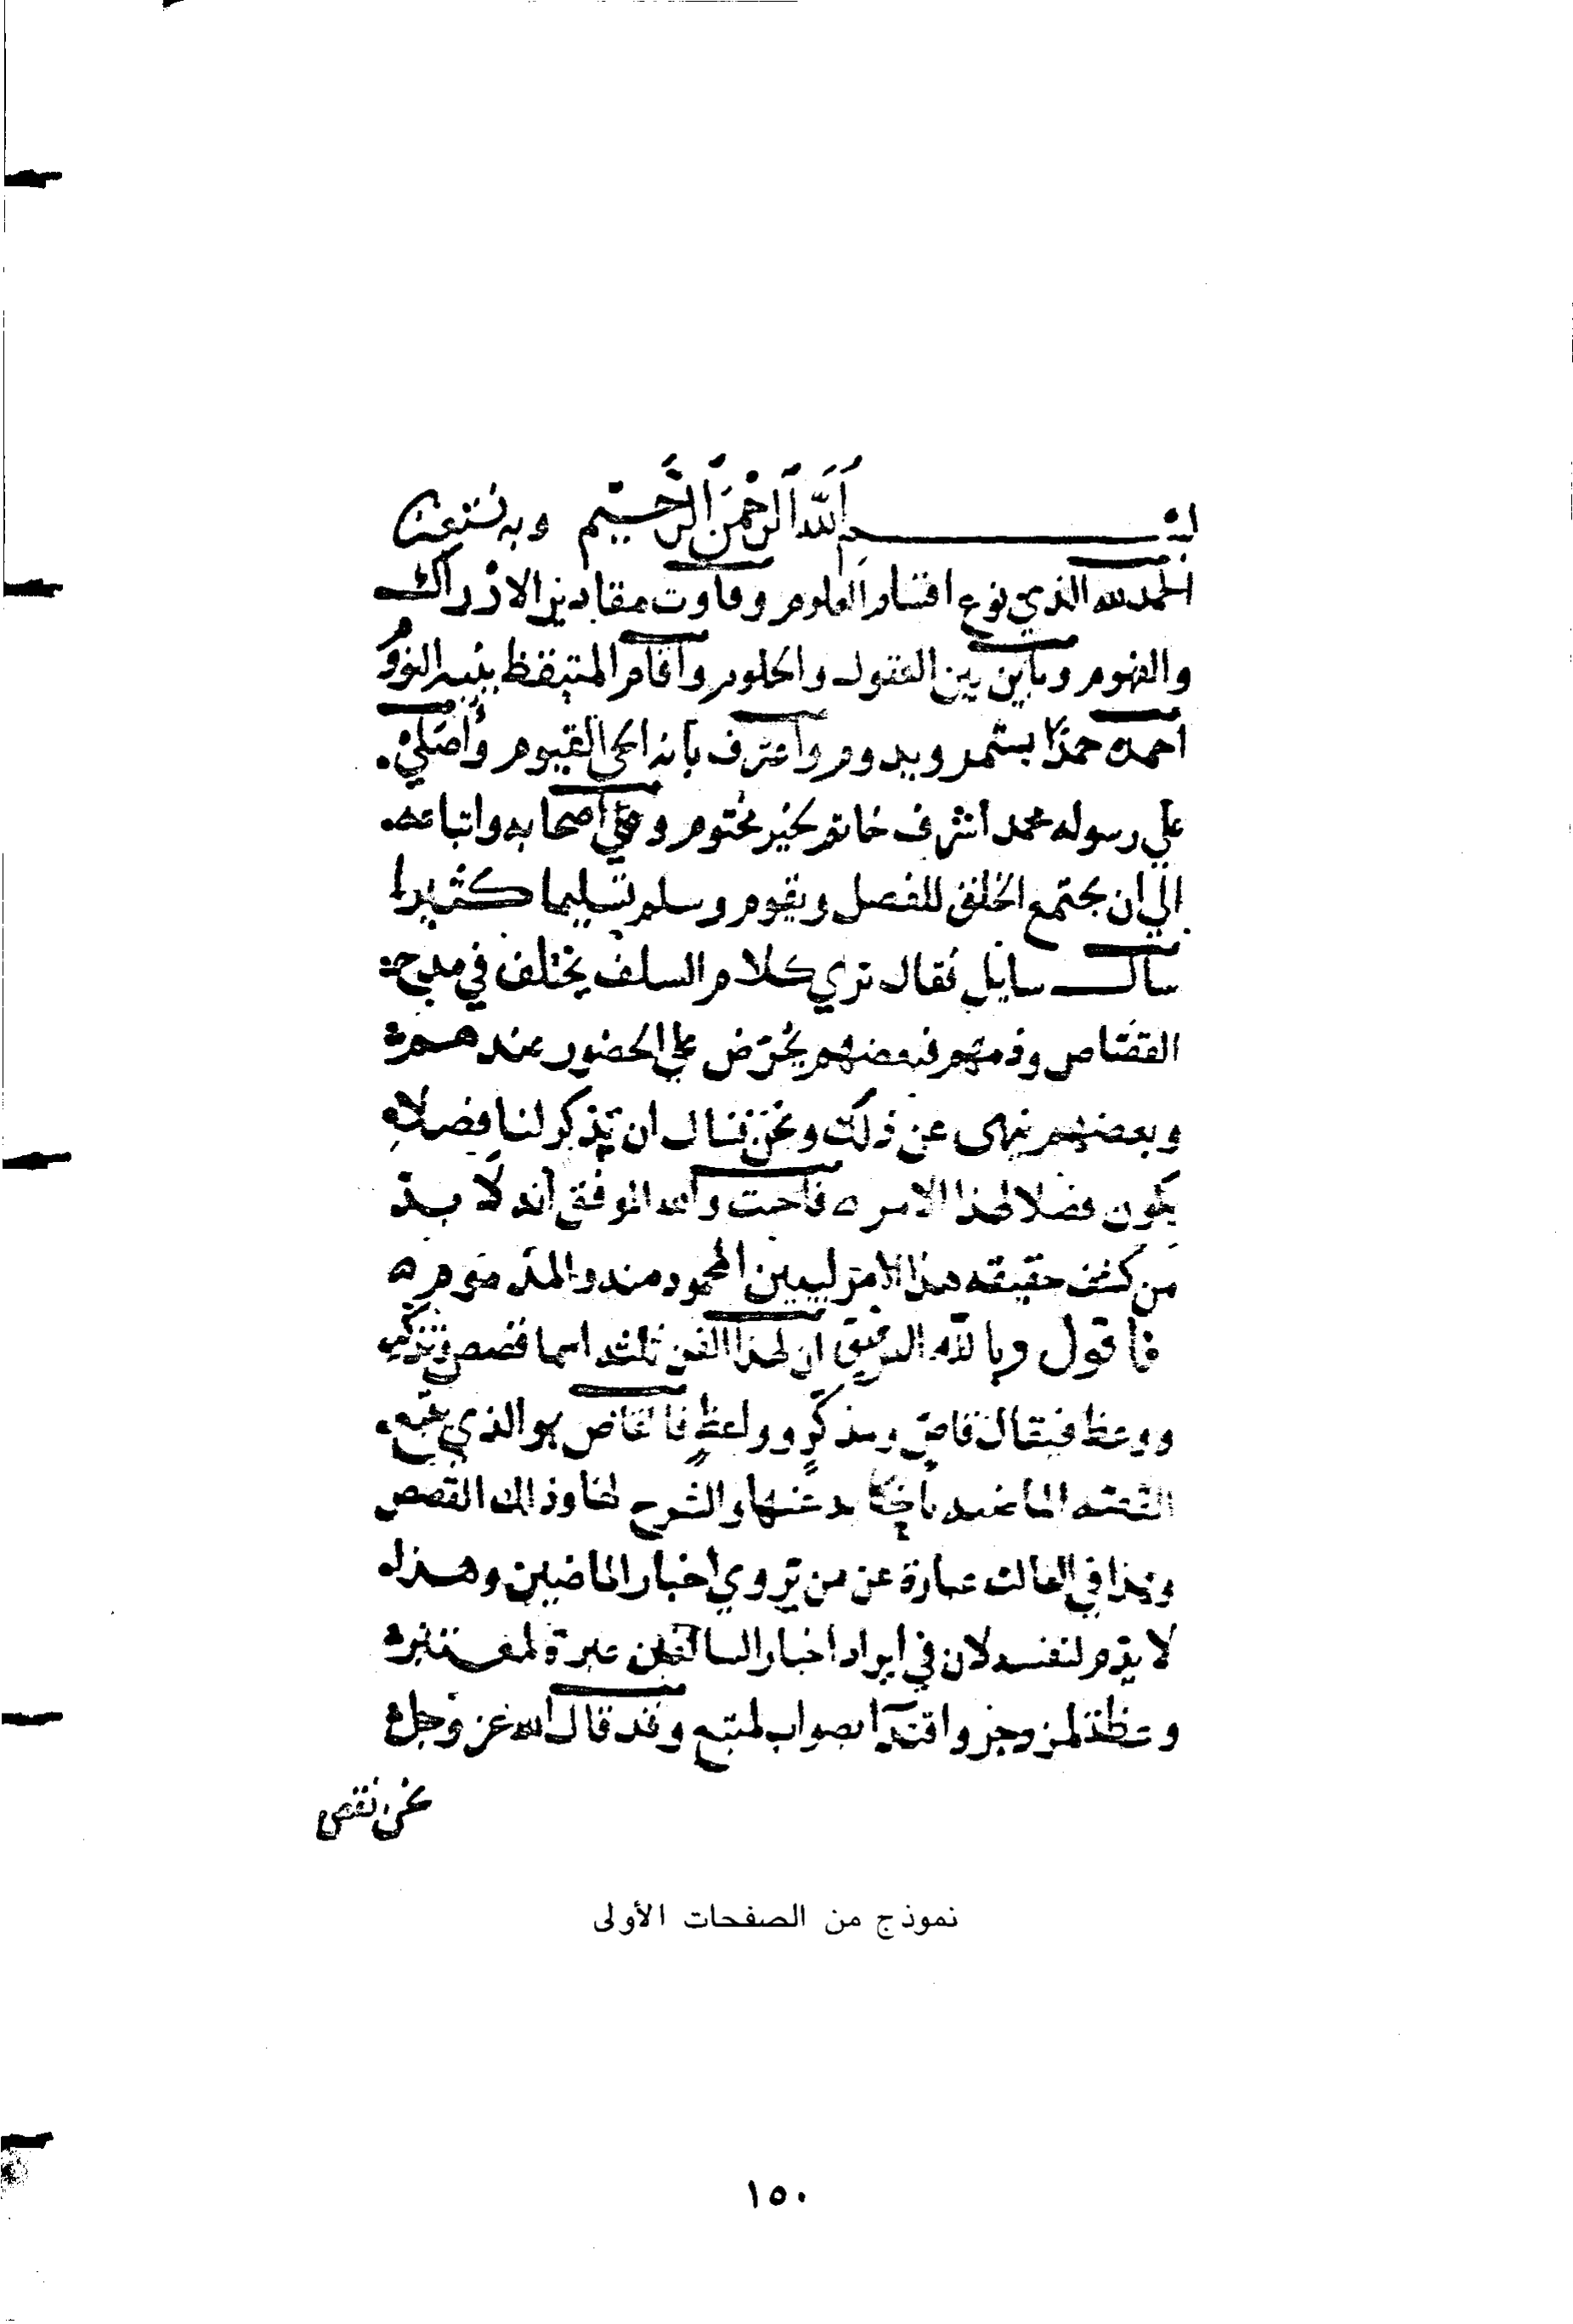 بسم الله الرحمن الرحيم وبه نستعين
الحمد لله الذي نوع اقسام العلوم وفاوت مقادير الادراك
والفهوم وباين بين العقول والحلوم واقام المتيقظ ينبه النؤوم
احمده حمدا يستمر ويدوم واعترف بانه الحي القيوم واصلي
علي رسوله محمد اشرف خاتم لخير مختوم وعلي اصحابه واتباعه
الي ان يجتمع الخلق للفصل ويقوم وسلم تسليما كثيرا
سأل سايل فقال تري كلام السلف يختلف في مدح
القصاص وذمهم فبعضهم يحرض علي الحضور عندهم
وبعضهم ينهى عن ذلك ونحن نسال ان تذكر لنا فصلا
يكون فصلا لهذا الامر فاجبت والله الموفق انه لا بد
من كشف حقيقه هذا الامر ليبين المحمود منه والمذموم
فاقول وبالله التوفيق ان لهذا الفن ثلثه اسما قصص وتذكير
ووعظ فيقال قاص ومذكر وواعظ فالقاص هو الذي يتبع
القصه الماضيه بالحكايه عنها والشرح لها وذلك القصص
وهذا في الغالب عبارة عن من يروي اخبار الماضين وهذا
لا يذم لنفسه لان في ايراد اخبار السالفين عبرة لمعتبر
وعظة لمزدجر واقتدا بصواب لمتبع وقد قال الله عز وجل
نحن نقص
نموذج من الصفحات الأولى
١٥٠